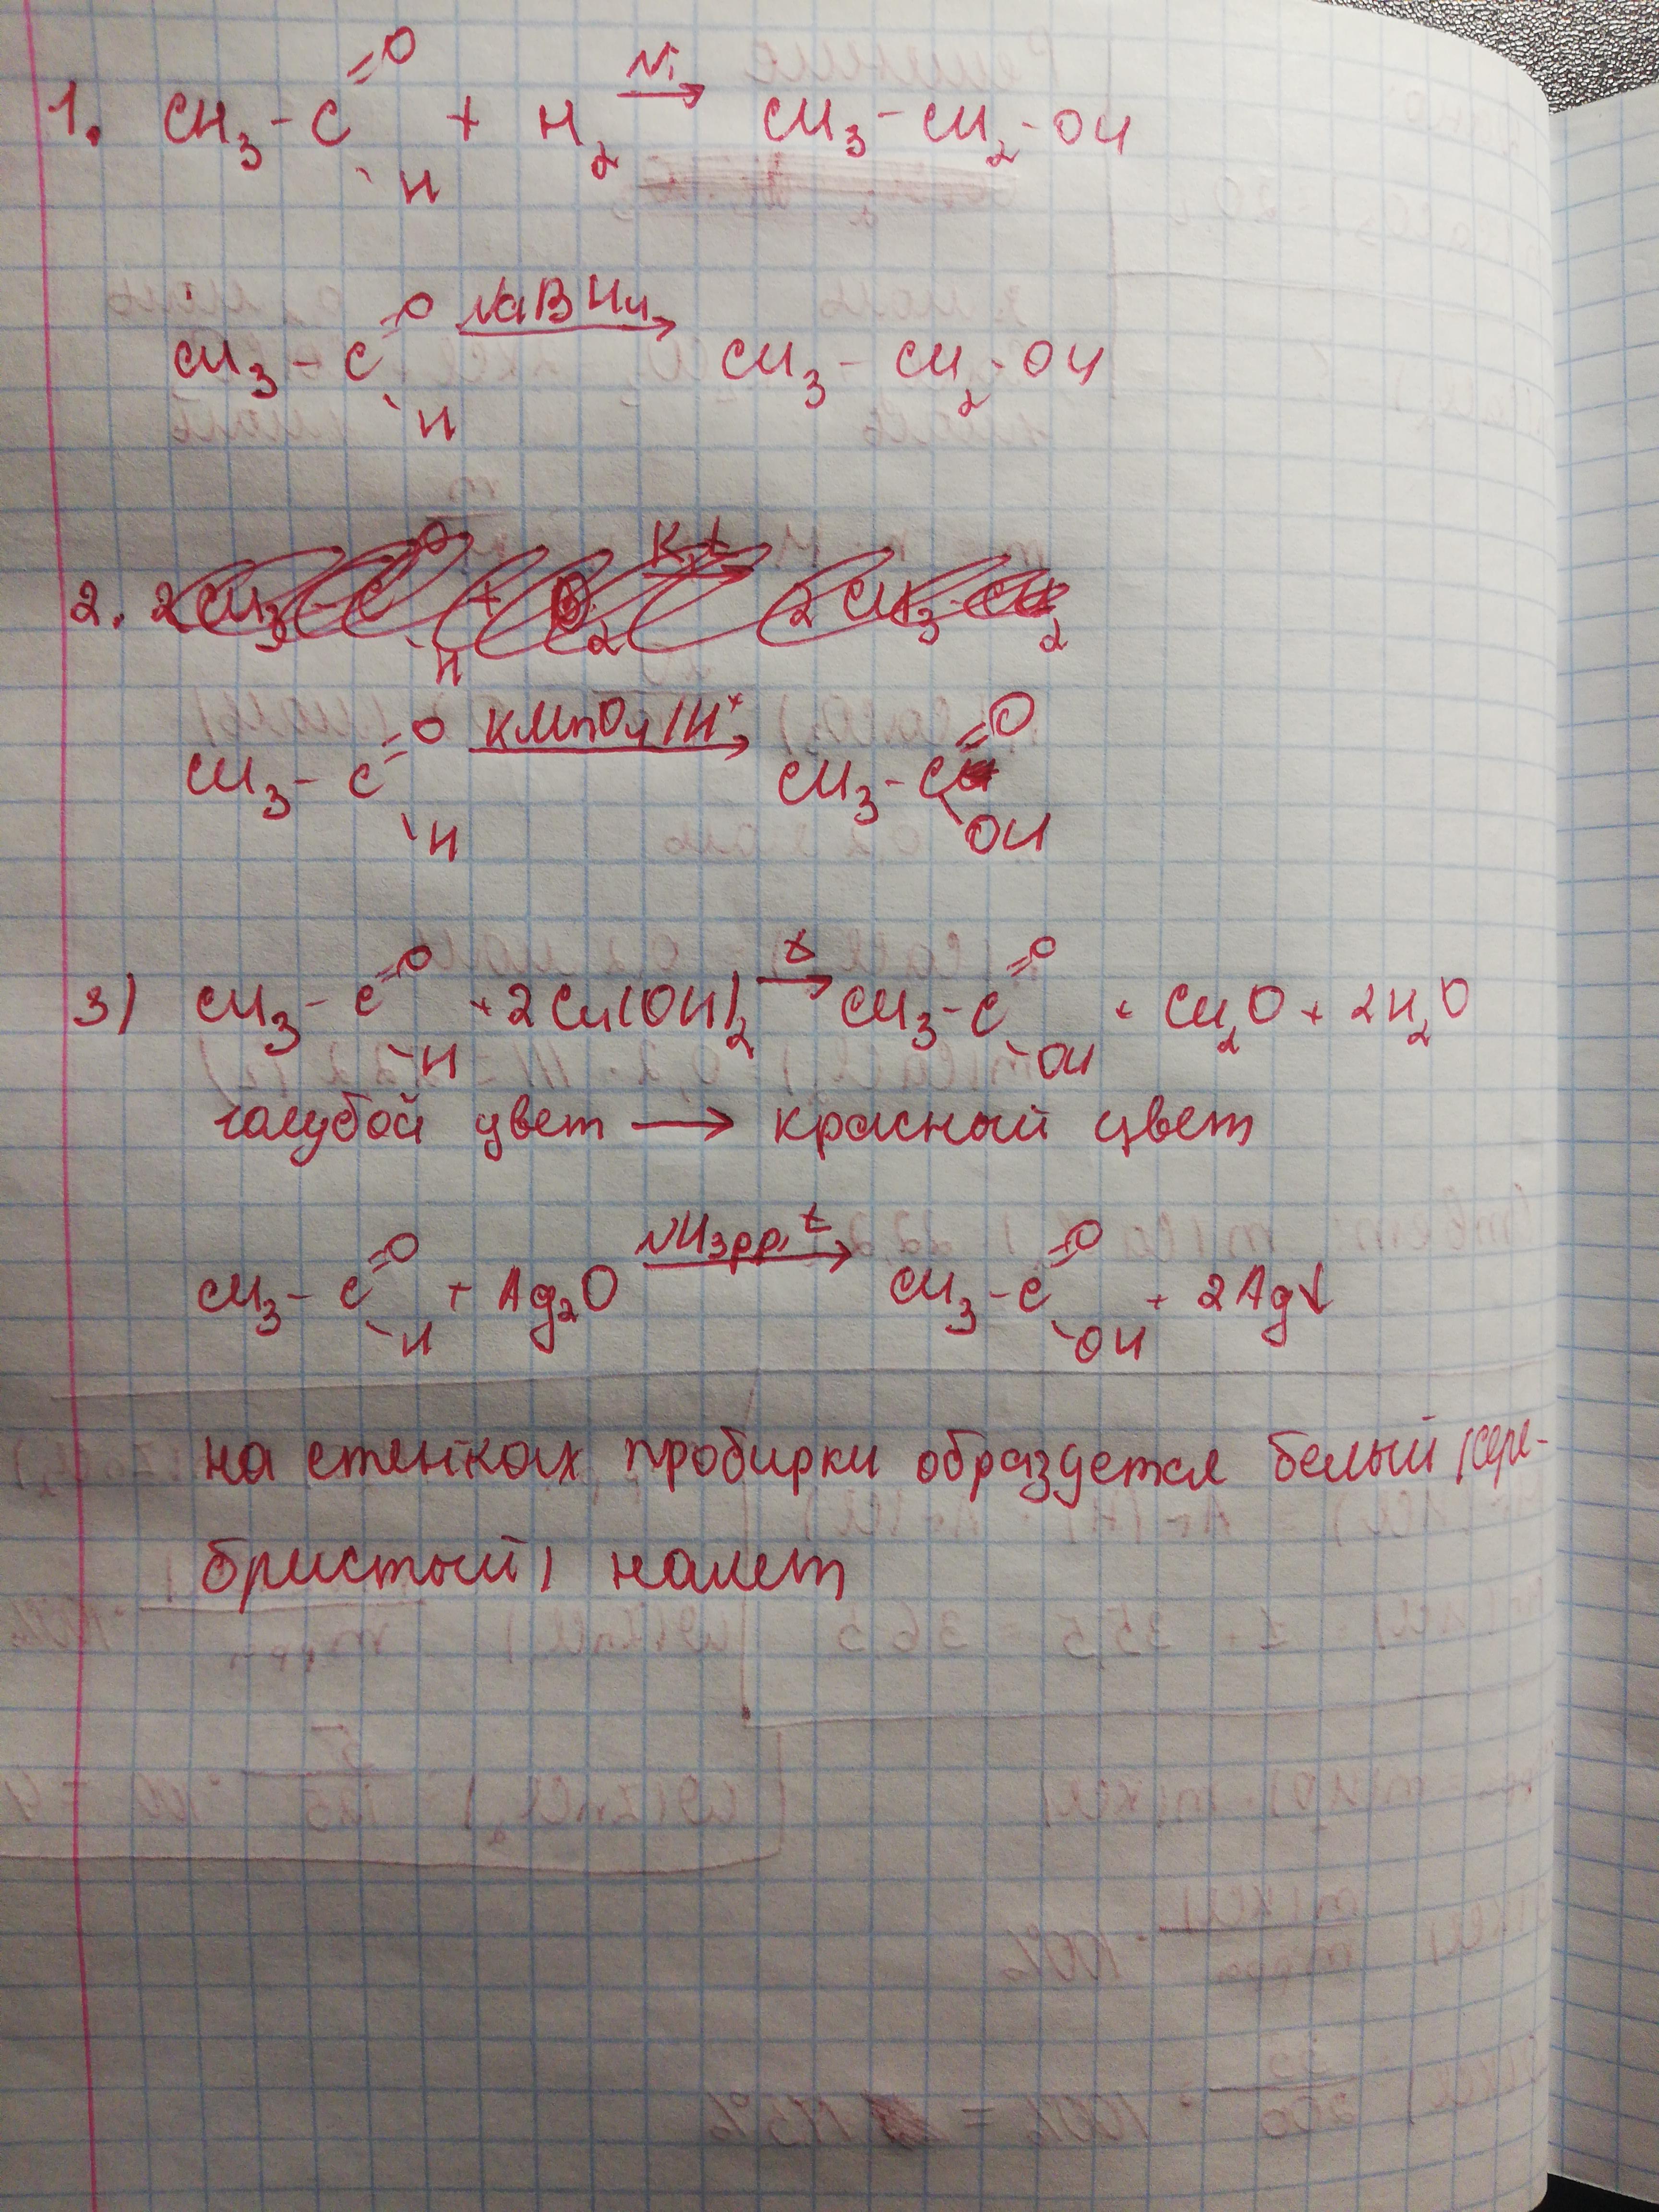 1. CH₃-C =O \H + H₂ Ni→ CH₃-CH₂-OH
CH₃-C =O \H NaBH₄→ CH₃-CH₂-OH
2. 2CH₃-C =O \H + O₂ K,t→ 2CH₃-
CH₃-C =O \H KMnO₄/H⁺→ CH₃-C =O \OH
3) CH₃-C =O \H + 2Cu(OH)₂ t→ CH₃-C =O \OH + Cu₂O + 2H₂O
голубой цвет → красный цвет
CH₃-C =O \H + Ag₂O NH₃рр, t→ CH₃-C =O \OH + 2Ag↓
на стенках пробирки образуется белый (сере-
бристый) налет